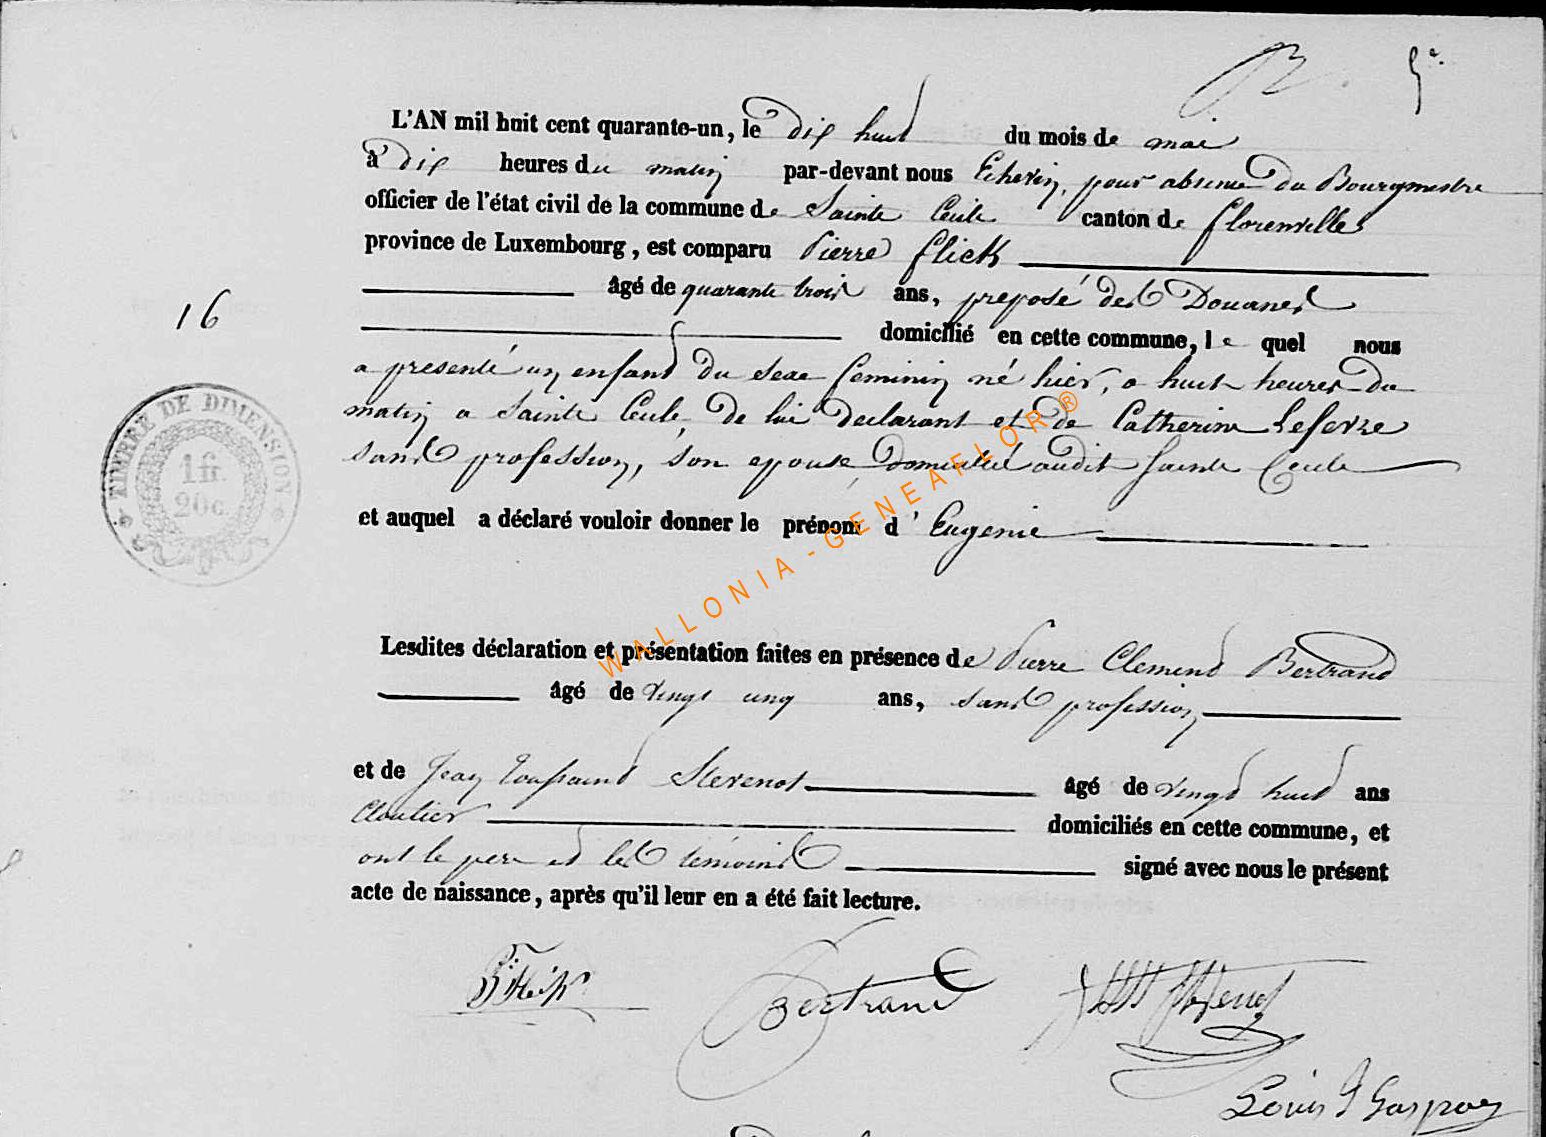 5e.
L'AN mil huit cent quarante-un, le dix huit du mois de mai
à dix heures du matin par-devant nous Echevin, pour absence du Bourgmestre
officier de l'état civil de la commune de Sainte Cecile canton de florenville
province de Luxembourg, est comparu Pierre flick
âgé de quarante trois ans, preposé des Douanes
16
domicilié en cette commune, le quel nous
a presenté un enfant du sexe feminin né hier, a huit heures du
matin a Sainte Cecile, de lui declarant et de Catherine Lefevre
sans profession, son epouse, domicilié audit Sainte Cecile
TIMBRE DE DIMENSION
1 fr.
20 c.
et auquel a déclaré vouloir donner le prénom d'Eugenie
Lesdites déclaration et présentation faites en présence de Pierre Clement Bertrand
âgé de vingt cinq ans, sans profession
et de Jean Toussaint Stevenot âgé de vingt huit ans
Cloutier domiciliés en cette commune, et
ont le pere et les témoins signé avec nous le présent
acte de naissance, après qu'il leur en a été fait lecture.
P. Flick Bertrand Stevenot
Louis J Gaspar
WALLONIA-GENEAFLOR®